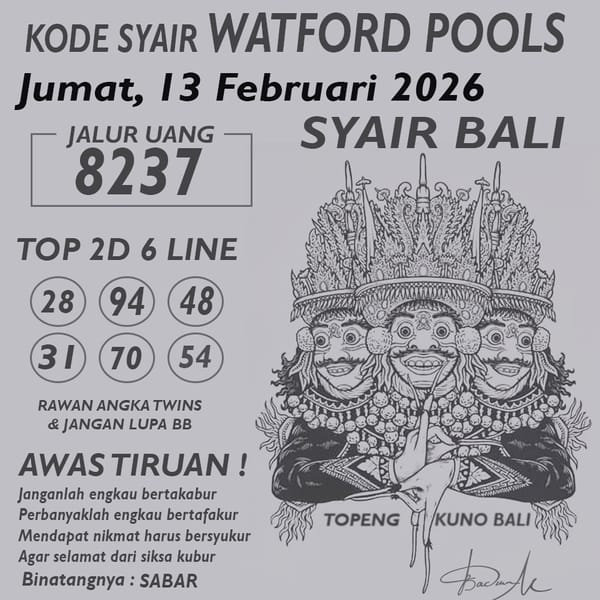 KODE SYAIR WATFORD POOLS
Jumat, 13 Februari 2026
JALUR UANG
8237
SYAIR BALI
TOP 2D 6 LINE
28 94 48
31 70 54
RAWAN ANGKA TWINS
& JANGAN LUPA BB
AWAS TIRUAN !
Janganlah engkau bertakabur
Perbanyaklah engkau bertafakur
Mendapat nikmat harus bersyukur
Agar selamat dari siksa kubur
Binatangnya : SABAR
TOPENG KUNO BALI